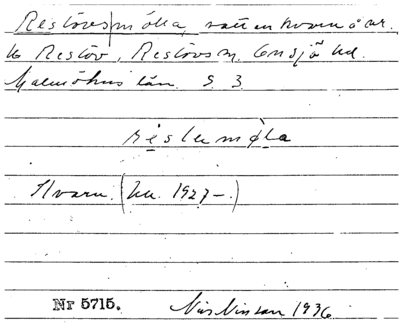 Restövsmölla, vattenkvarn å ar.
to Restöv, Restövs m. Onsjö hd.
Malmöhus län. S 3
reslumøla
Kvarn. (Bil. 1927–.)
Nr 5715. Nils Nilsson 1936